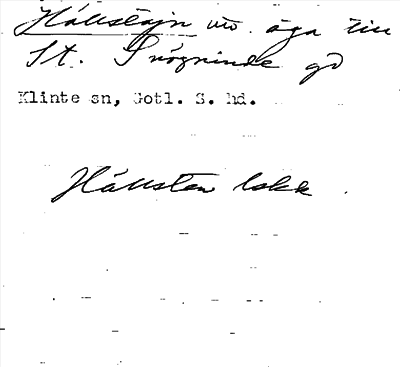 Hällstäjn utö. äga till
St. Snögrinde gd
Klinte sn, Gotl. S. hd.
Hällsten lokk